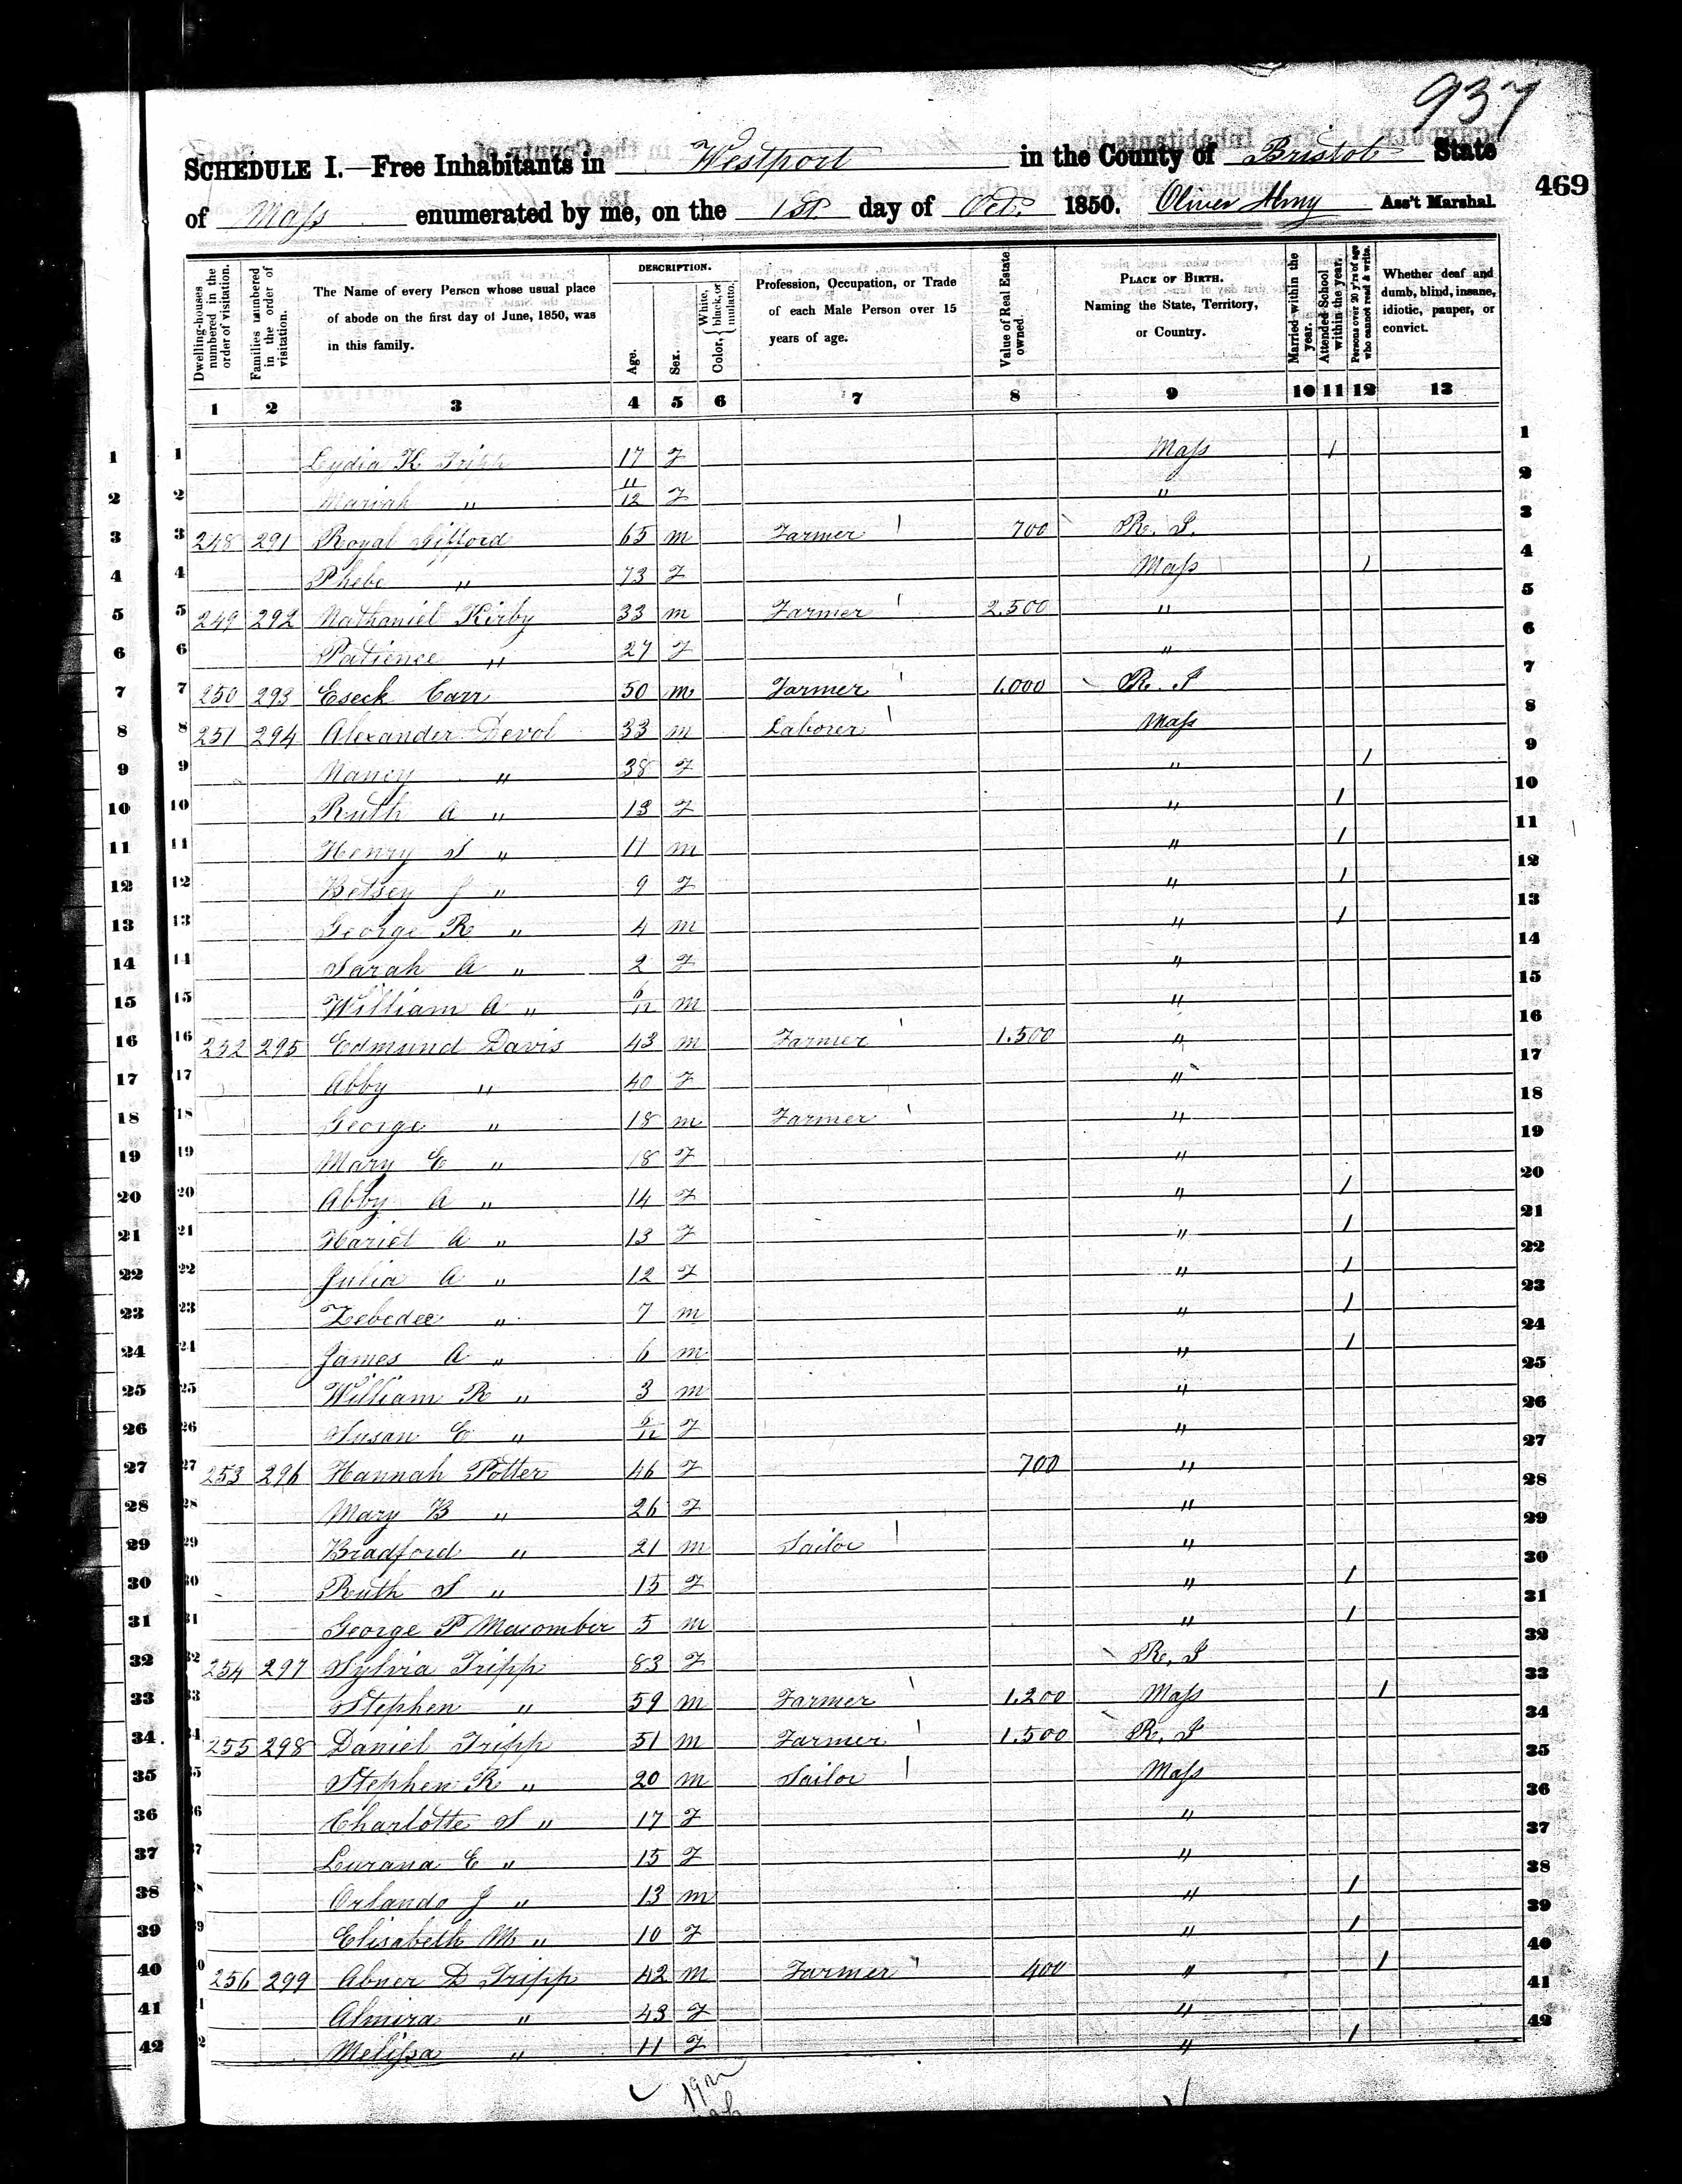 937
SCHEDULE I.—Free Inhabitants in Westport in the County of Bristol State
469
of Mass enumerated by me, on the 1st day of Oct. 1850. Oliver Almy Ass't Marshal.
Dwelling-houses numbered in the order of visitation. Families numbered in the order of visitation. The Name of every Person whose usual place of abode on the first day of June, 1850, was in this family. DESCRIPTION. Age. Sex. Color, { White, black, or mulatto. Profession, Occupation, or Trade of each Male Person over 15 years of age. Value of Real Estate owned. PLACE OF BIRTH. Naming the State, Territory, or Country. Married within the year. Attended School within the year. Persons over 20 y'rs of age who cannot read & write. Whether deaf and dumb, blind, insane, idiotic, pauper, or convict.
1 2 3 4 5 6 7 8 9 10 11 12 13
1 1 Lydia K Tripp 17 F Mass 1 1
2 2 Mariah " 11/12 F " 2
3 3 248 291 Royal Gifford 65 m Farmer 700 R. I. 3
4 4 Phebe " 73 F Mass 1 4
5 5 249 292 Nathaniel Kirby 33 m Farmer 2.500 " 5
6 6 Patience " 27 F " 6
7 7 250 293 Eseck Carr 50 m Farmer 1.000 R. I 7
8 8 251 294 Alexander Devol 33 m Laborer Mass 8
9 9 Nancy " 38 F " 1 9
10 10 Ruth A " 13 F " 1 10
11 11 Henry S " 11 m " 1 11
12 12 Betsey J " 9 F " 1 12
13 13 George R " 4 m " 1 13
14 14 Sarah A " 2 F " 14
15 15 William A " 6/12 m " 15
16 16 252 295 Edmund Davis 43 m Farmer 1.500 " 16
17 17 Abby " 40 F " 17
18 18 George " 18 m Farmer " 18
19 19 Mary E " 18 F " 19
20 20 Abby A " 14 F " 1 20
21 21 Hariet A " 13 F " 1 21
22 22 Julia A " 12 F " 1 22
23 23 Zebedee " 7 m " 1 23
24 24 James A " 6 m " 1 24
25 25 William R " 3 m " 25
26 26 Susan E " F " 26
27 27 253 296 Hannah Potter 46 F 700 " 27
28 28 Mary B " 26 F " 28
29 29 Bradford " 21 m Sailor " 29
30 30 Ruth S " 15 F " 1 30
31 31 George P Macomber 5 m " 1 31
32 32 254 297 Sylvia Tripp 83 F R. I 32
33 33 Stephen " 59 m Farmer 1.200 Mass 1 33
34 34 255 298 Daniel Tripp 51 m Farmer 1.500 R. I 34
35 35 Stephen R " 20 m Sailor Mass 35
36 36 Charlotte S " 17 F " 36
37 37 Lurana E " 15 F " 37
38 38 Orlando J " 13 m " 1 38
39 39 Elisabeth M " 10 F " 1 39
40 40 256 299 Abner D Tripp 42 m Farmer 400 " 1 40
41 41 Almira " 43 F " 41
42 42 Melissa " 11 F " 1 42